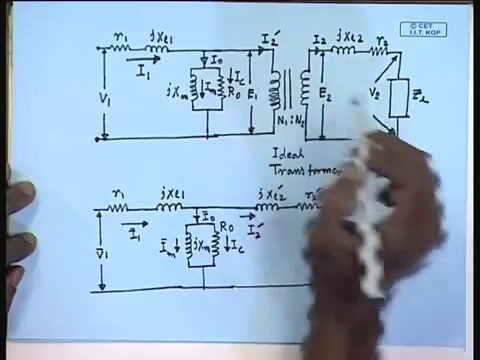 © CET
I.I.T. KGP
r₁ jXe₁ I₂′ I₂ jXe₂ r₂
I₁ I₀
V₁ jXm Im R₀ Ic E₁ E₂ V₂ Z̄L
N₁ : N₂
Ideal
Transformer
r₁ jXe₁ jXe₂′ r₂′
Ī₁ Ī₀ I₂′
V̄₁ Īm jXm R₀ Ic